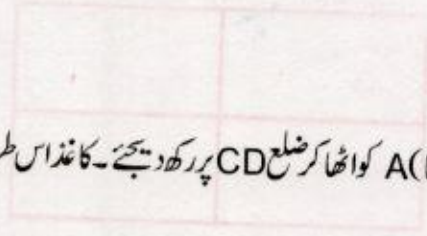 A( کو اٹھا کر ضلع CD پر رکھ دیجئے ۔ کاغذ اس